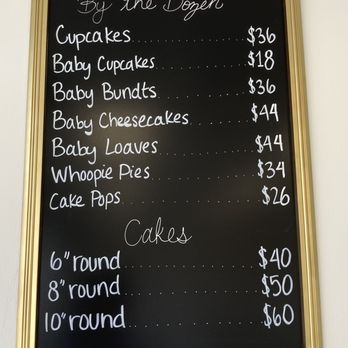 By the Dozen
Cupcakes.................$36
Baby Cupcakes..............$18
Baby Bundts................$36
Baby Cheesecakes..........$44
Baby Loaves...............$44
Whoopie Pies...............$34
Cake Pops..................$26
Cakes
6" round...................$40
8" round...................$50
10" round..................$60